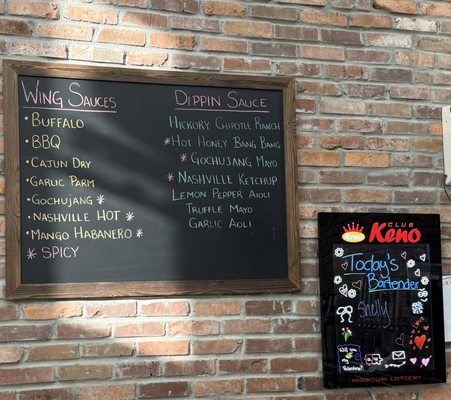 Wing Sauces
• Buffalo
• BBQ
• Cajun Dry
• Garlic Parm
• Gochujang *
• Nashville Hot *
• Mango Habanero *
* Spicy
Dippin Sauce
Hickory Chipotle Ranch
* Hot Honey Bang Bang
* Gochujang Mayo
* Nashville Ketchup
Lemon Pepper Aioli
Truffle Mayo
Garlic Aioli
CLUB
Keno
Today's
Bartender
Shelly
Will you
Valentine?
MISSOURI LOTTERY